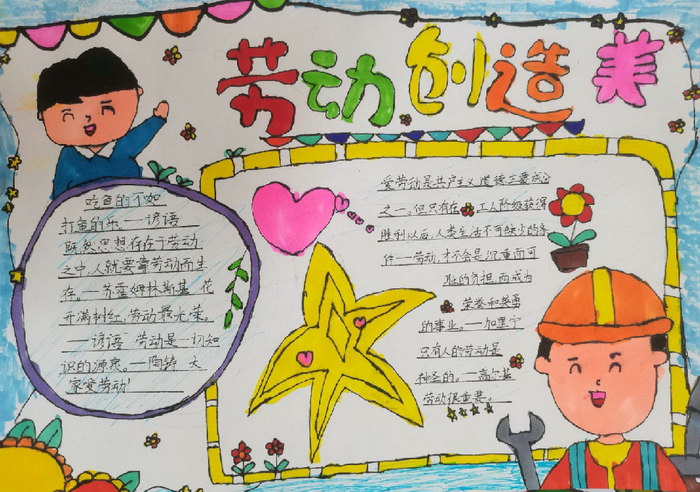 劳动创造美
吃鱼的不如
打鱼的乐。—谚语
既然思想存在于劳动
之中,人就要靠劳动而生
存。—苏霍姆林斯基 花
开满树红,劳动最光荣。
—谚语 劳动是一切知
识的源泉。—陶铸 大
家爱劳动!
爱劳动是共产主义道德主要成分
之一。但只有在工人阶级获得
胜利以后,人类生活不可缺少的条
件—劳动,才不会是沉重而可
耻的负担,而成为
荣誉和英勇
的事业。—加里宁
只有人的劳动是
神圣的。—高尔基
劳动很重要。